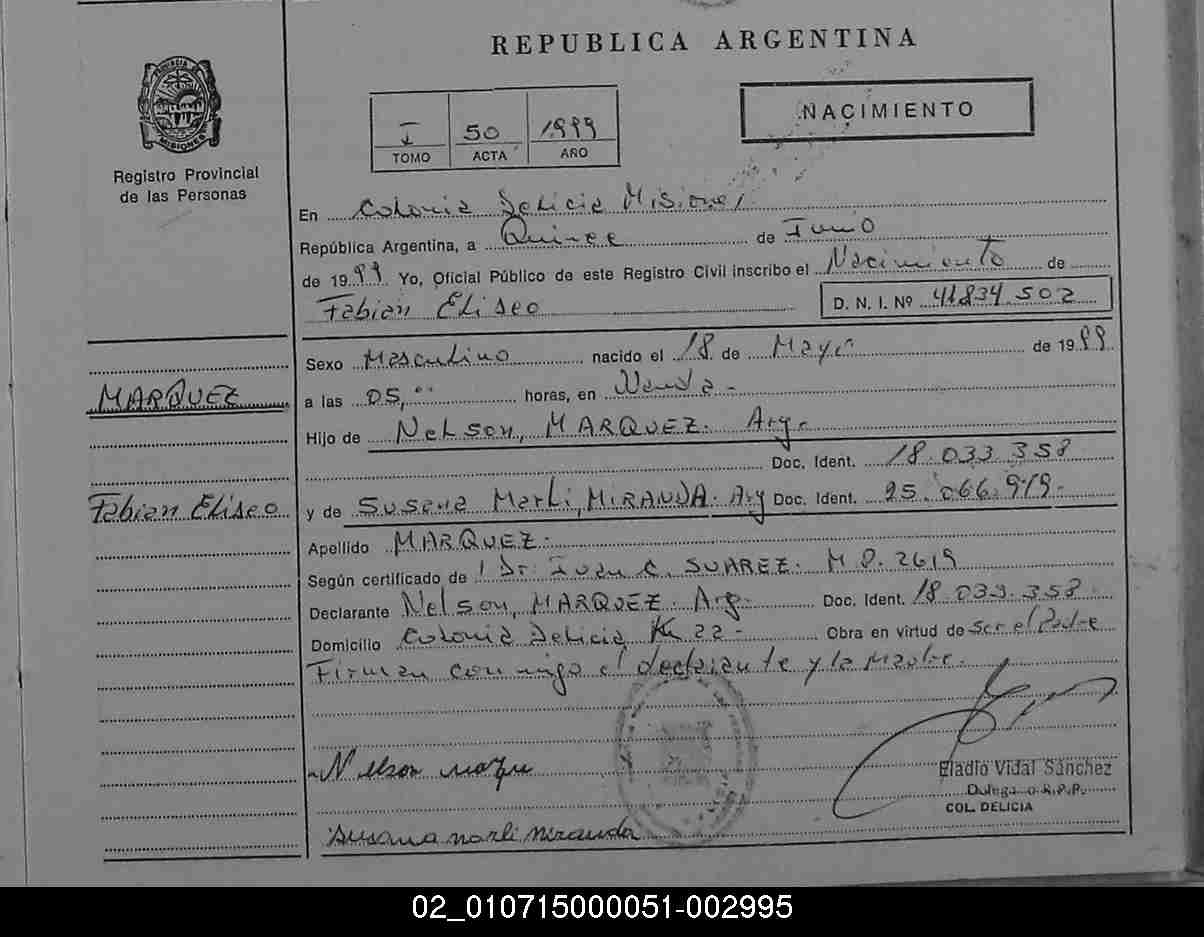 REPUBLICA ARGENTINA
PROVINCIA DE
MISIONES
Registro Provincial
de las Personas
I 50 1999
TOMO ACTA AÑO
NACIMIENTO
En Colonia Delicia Misiones
República Argentina, a Quince de Junio
de 1999 Yo, Oficial Público de este Registro Civil inscribo el Nacimiento de
Fabian Eliseo D. N. I. Nº 41.834.502
Sexo Masculino nacido el 18 de Mayo de 1999
MARQUEZ
a las 05,00 horas, en
Hijo de Nelson, MARQUEZ. Arg.
Doc. Ident. 18.033.358
Fabian Eliseo
y de Susana Marli, MIRANDA. Arg Doc. Ident. 25.066.919-
Apellido MARQUEZ-
Según certificado de Dr. Juan C. SUAREZ. M.P. 2619
Declarante Nelson, MARQUEZ. Arg. Doc. Ident. 18.033.358.
Domicilio Colonia Delicia, Km 22- Obra en virtud de Ser el Padre
Firman conmigo el declarante y la Madre.
Nelson
Eladio Vidal Sanchez
Delegado R.P.P.
COL. DELICIA
Susana Marli Miranda
02_010715000051-002995